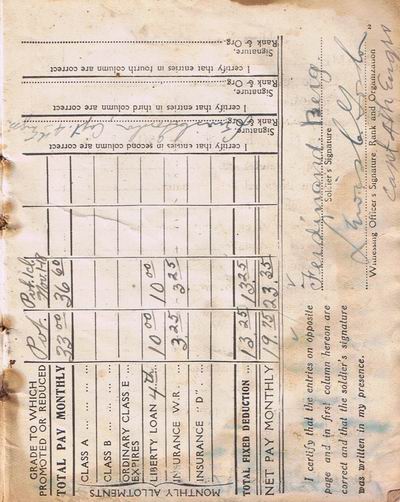 GRADE TO WHICH
PROMOTED OR REDUCED Pvt.
TOTAL PAY MONTHLY 33 00 36 60
MONTHLY ALLOTMENTS
CLASS A
CLASS B
ORDINARY CLASS E
EXPIRES
LIBERTY LOAN 4th 10 00 10 00
INSURANCE W.R. 3 25 3 25
INSURANCE "D"
TOTAL FIXED DEDUCTION 13 25 13 25
NET PAY MONTHLY 19 75 23 35
I certify that entries in second column are correct
Signature,
Rank & Org.
I certify that entries in third column are correct
Signature,
Rank & Org.
I certify that entries in fourth column are correct
Signature,
Rank & Org.
I certify that the entries on opposite
page and in first column hereon are
correct and that the soldier's signature
was written in my presence.
Ferdinand Berg
Soldier's Signature
Witnessing Officer's Signature, Rank and Organization
Capt 4th Engrs